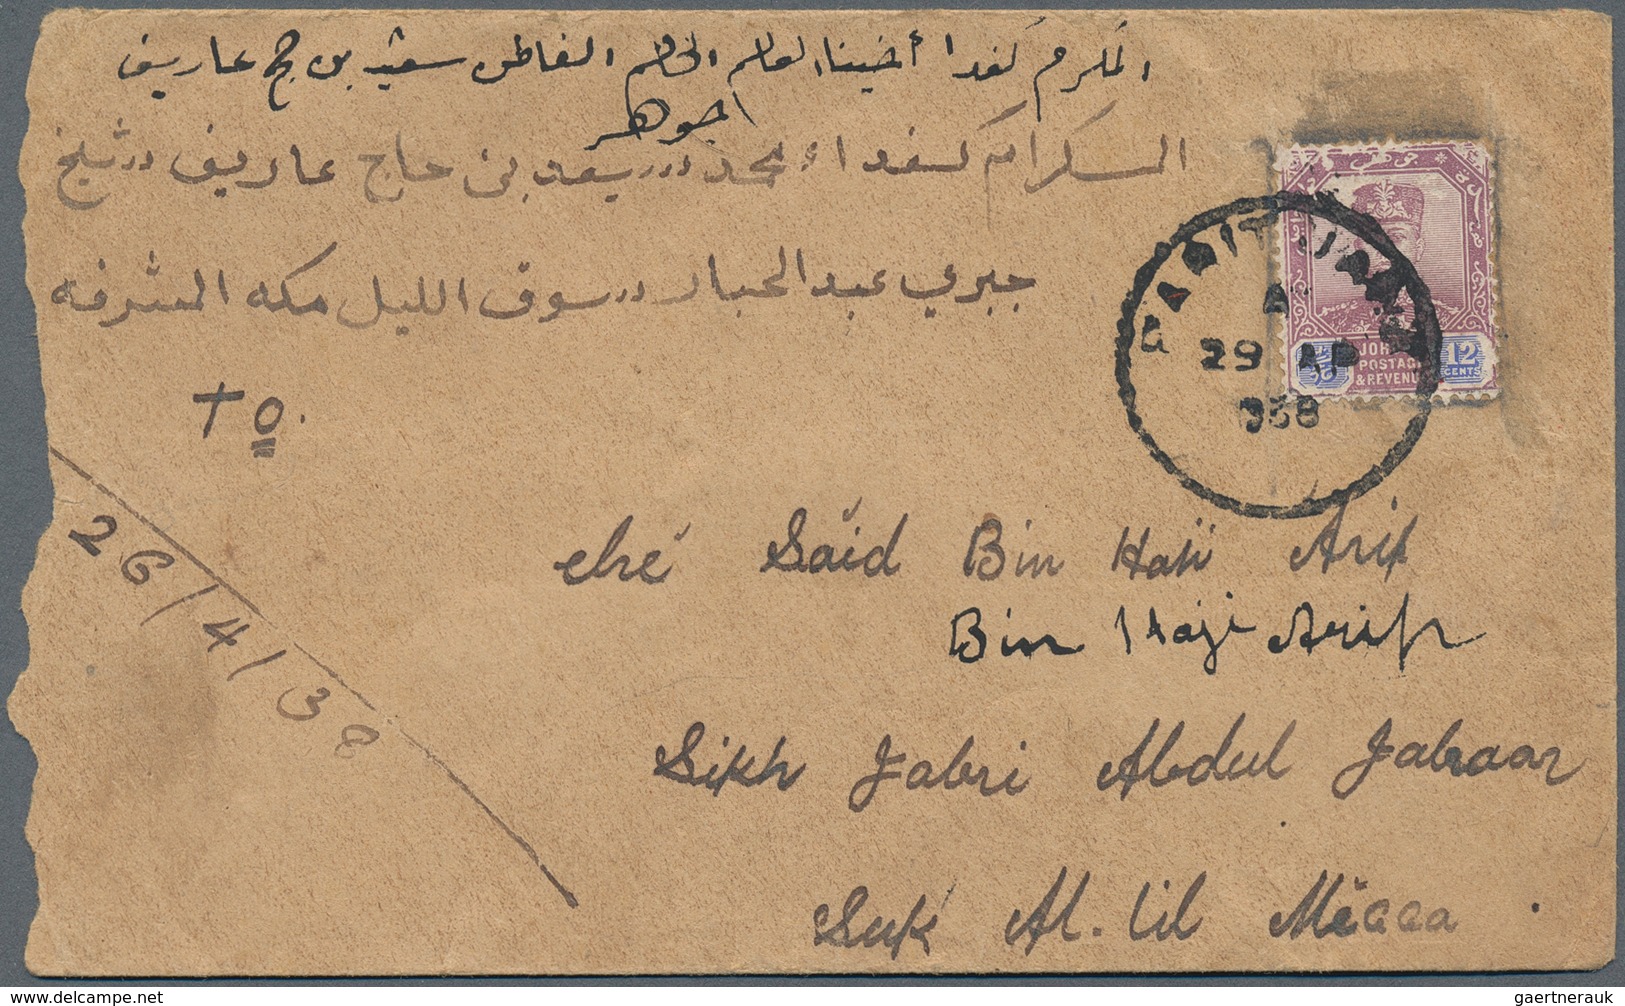 المكرم كفدا أخينا العالم الحاكم الفاظل سعيد بن حج عاريف
الجوهر
السكرام كفداء محمد سعيد بن حاج عاريف درشيخ
جبري عبدالجبار درسوق الليل مكه المشرفه
TO.
26/4/38
PARIT JAWA
A
29 AP
938
JOHORE
POSTAGE
& REVENUE
12
CENTS
ché Säid Bin Haji Arif
Bin Haji Ariff
Sikh Jabri Abdul Jabaar
Suk Al. lil Mecca.
delcampe.net
gaertnerauk